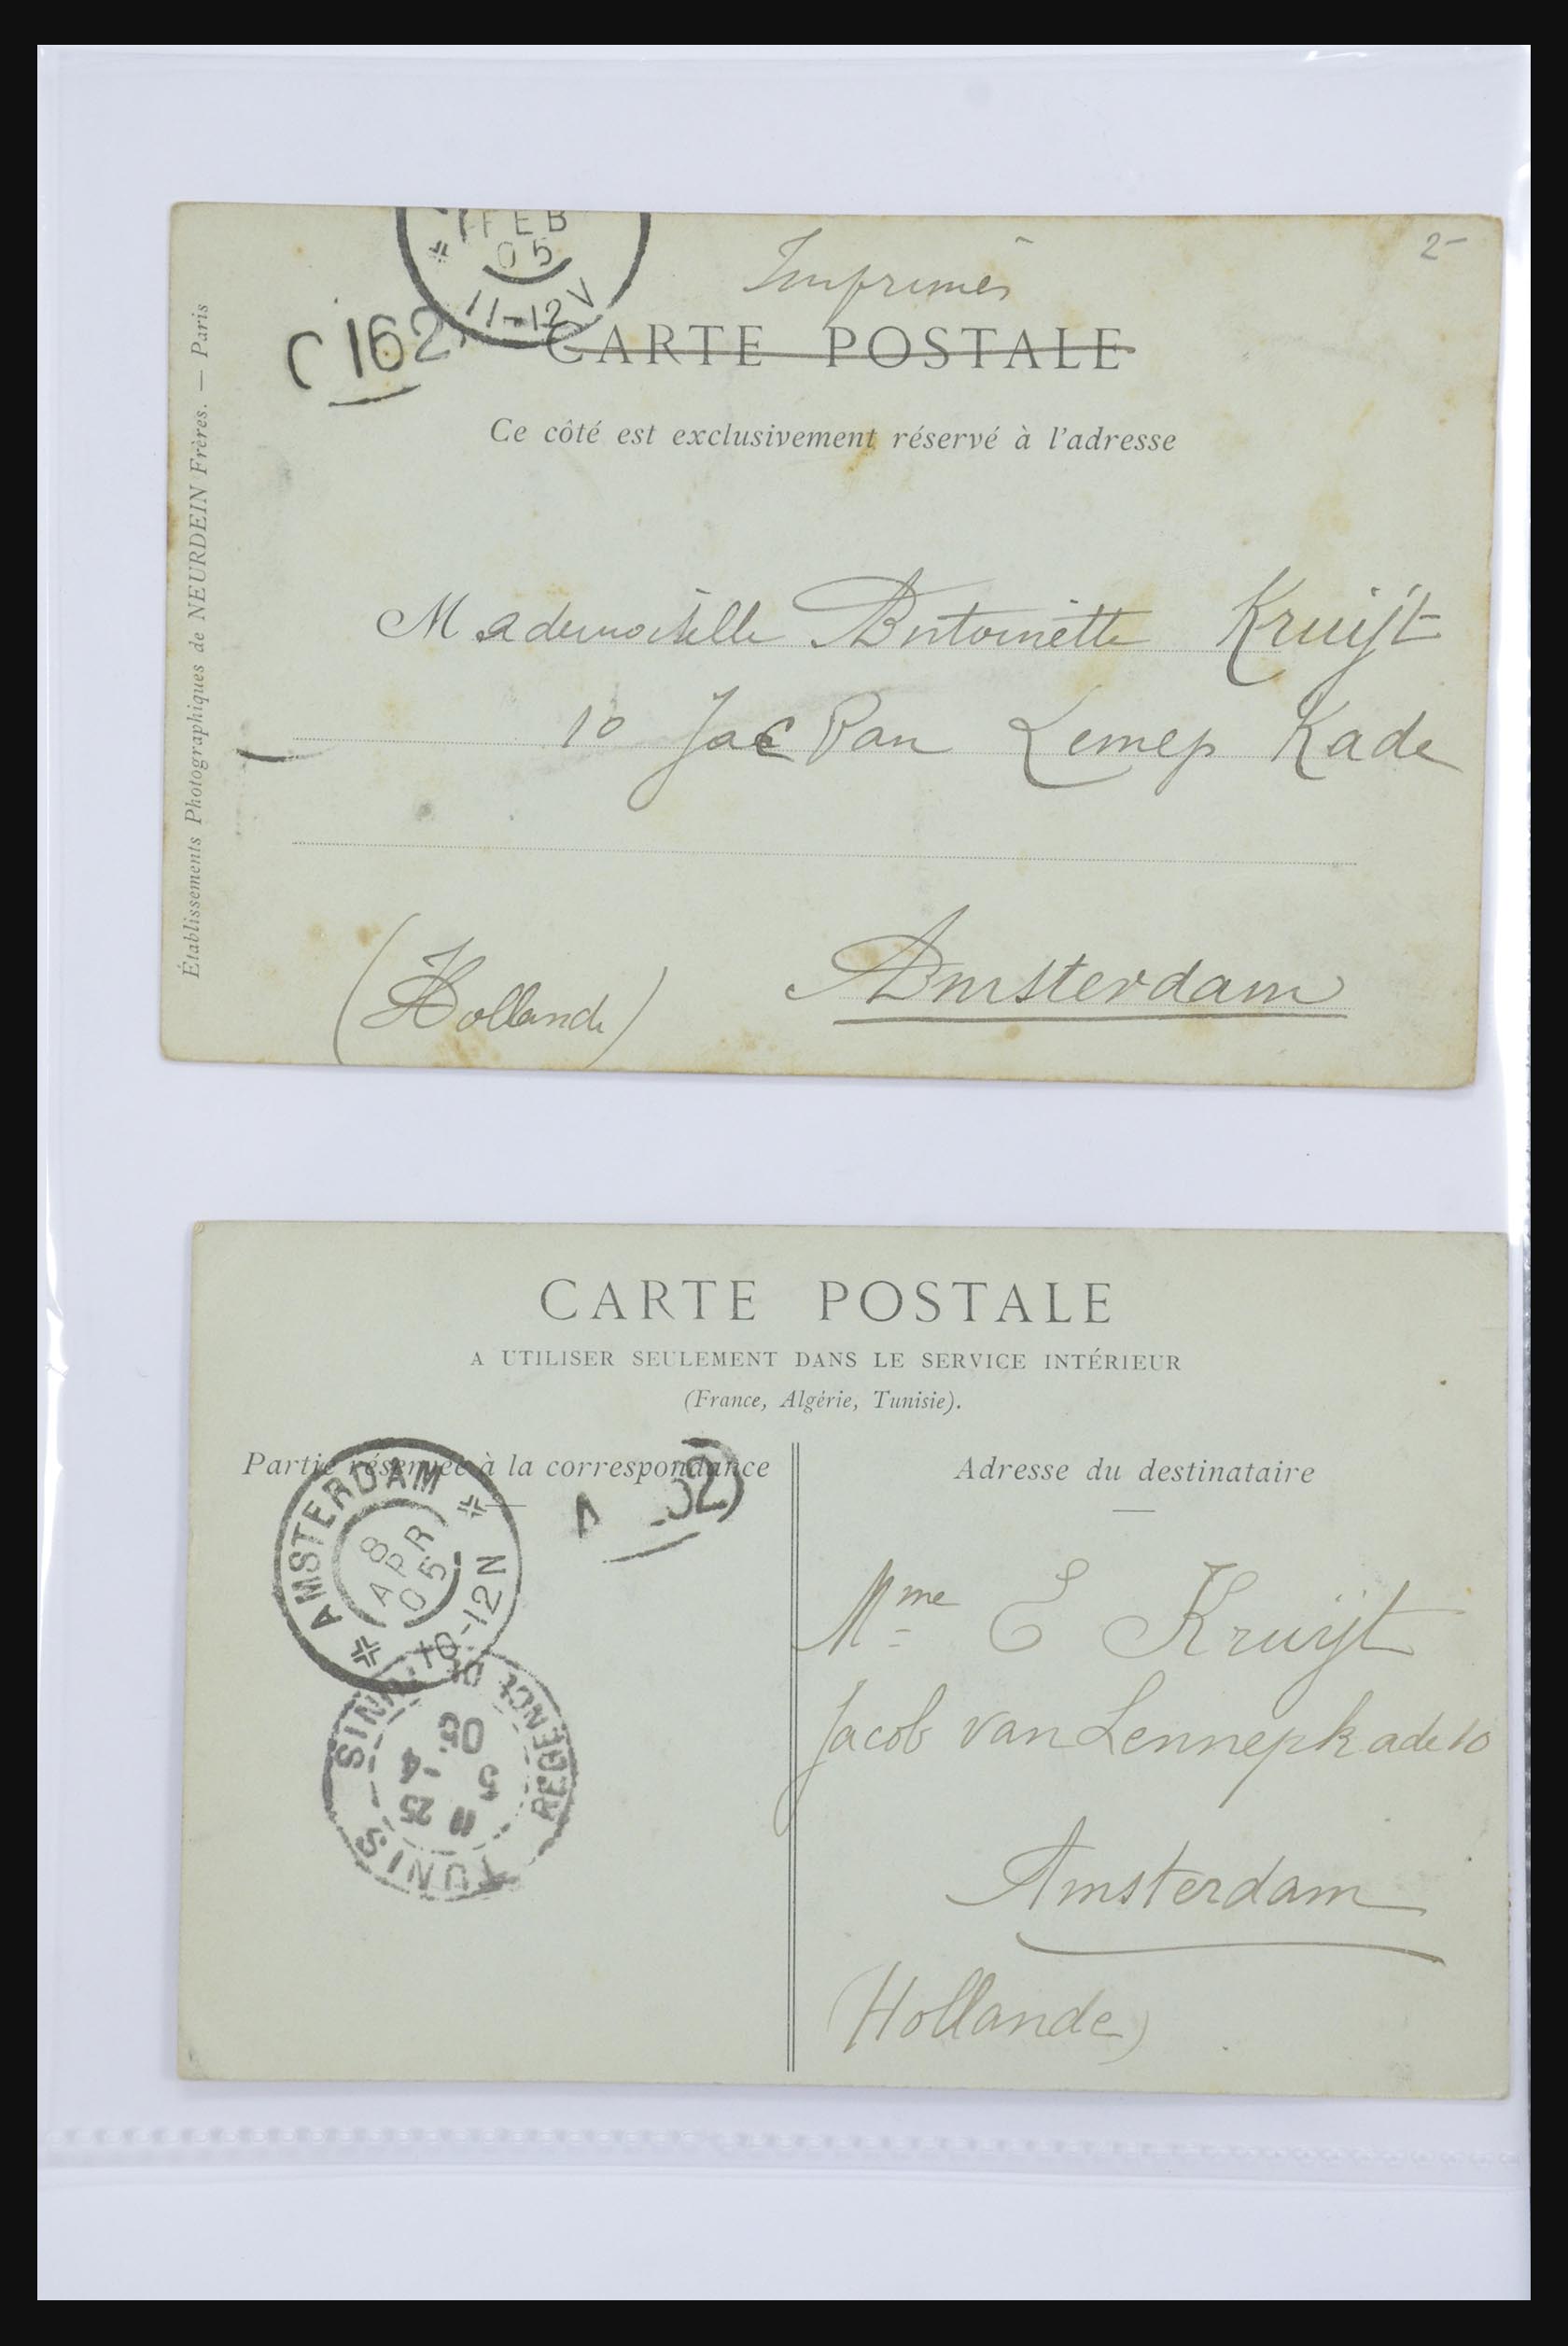 FEB
05
11-12 V
Imprimés
2-
C 162
CARTE POSTALE
Ce côté est exclusivement réservé à l'adresse
Établissements Photographiques de NEURDEIN Frères. — Paris
Mademoiselle Antoinette Kruijt
10 Jac Van Lemep Kade
Amsterdam
(Hollande)
CARTE POSTALE
A UTILISER SEULEMENT DANS LE SERVICE INTÉRIEUR
(France, Algérie, Tunisie).
Partie réservée à la correspondance
Adresse du destinataire
AMSTERDAM
8
APR
05
10-12 N
TUNIS
REGENCE DE
11 25
5 -4
05
Mme E Kruijt
Jacob van Lennepkade 10
Amsterdam
(Hollande)